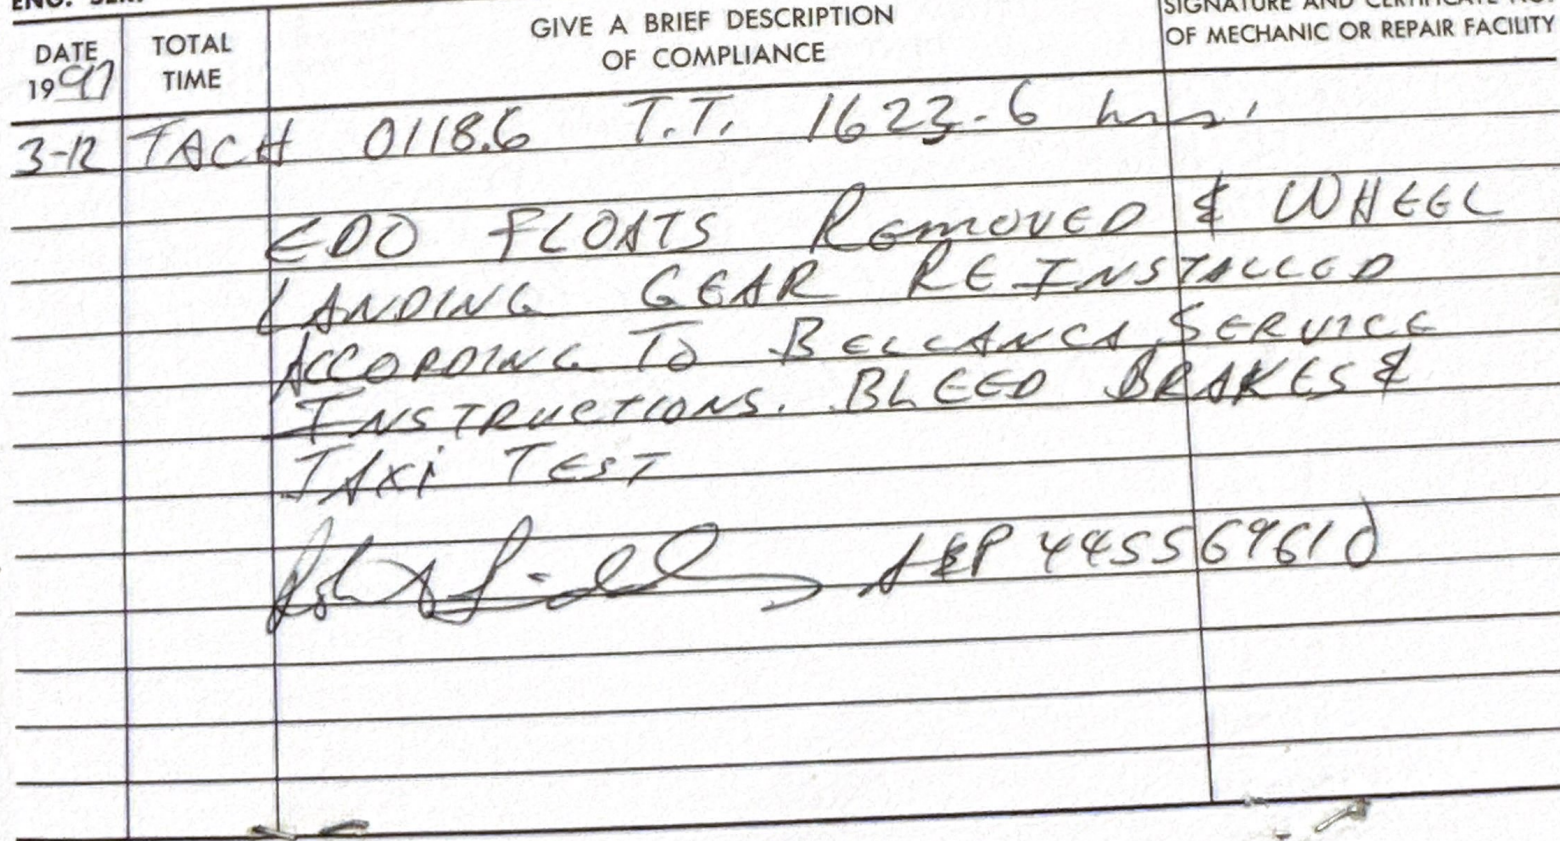 DATE
1997
TOTAL
TIME
GIVE A BRIEF DESCRIPTION
OF COMPLIANCE
SIGNATURE AND CERTIFICATE NO.
OF MECHANIC OR REPAIR FACILITY
3-12 TACH 0118.6 T.T. 1623.6 hrs.
EDO FLOATS REMOVED & WHEEL
LANDING GEAR REINSTALLED
ACCORDING TO BELLANCA SERVICE
INSTRUCTIONS. BLEED BRAKES &
TAXi TEST
A&P 445569610